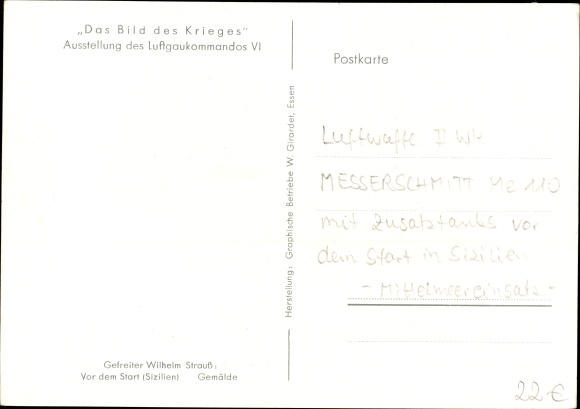 „Das Bild des Krieges"
Ausstellung des Luftgaukommandos VI
Gefreiter Wilhelm Strauß:
Vor dem Start (Sizilien) Gemälde
Herstellung: Graphische Betriebe W. Girardet, Essen
Postkarte
Luftwaffe II WK
MESSERSCHMITT Me 110
mit Zusatztanks vor
dem Start in Sizilien
- Mittelmeereinsatz -
22 €